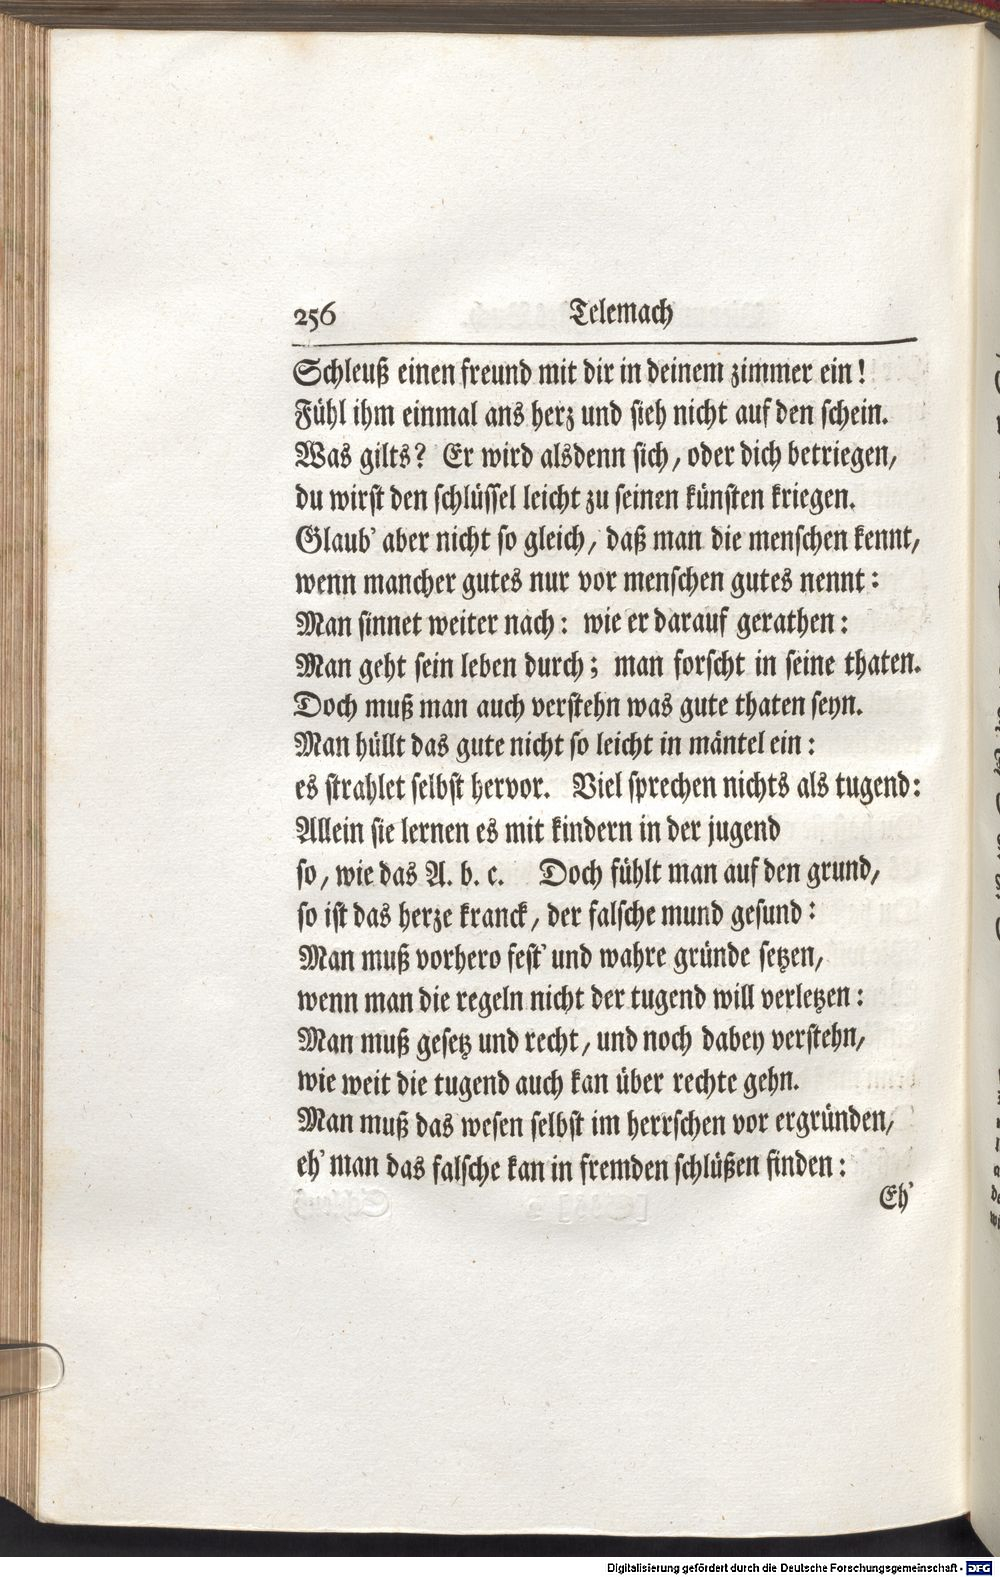 256 Telemach
Schleuß einen freund mit dir in deinem zimmer ein!
Fühl ihm einmal ans herz und sieh nicht auf den schein.
Was gilts? Er wird alsdenn sich, oder dich betriegen,
du wirst den schlüssel leicht zu seinen künsten kriegen.
Glaub' aber nicht so gleich, daß man die menschen kennt,
wenn mancher gutes nur vor menschen gutes nennt:
Man sinnet weiter nach: wie er darauf gerathen:
Man geht sein leben durch; man forscht in seine thaten.
Doch muß man auch verstehn was gute thaten seyn.
Man hüllt das gute nicht so leicht in mäntel ein:
es strahlet selbst hervor. Viel sprechen nichts als tugend:
Allein sie lernen es mit kindern in der jugend
so, wie das A. b. c. Doch fühlt man auf den grund,
so ist das herze kranck, der falsche mund gesund:
Man muß vorhero fest' und wahre gründe setzen,
wenn man die regeln nicht der tugend will verletzen:
Man muß gesetz und recht, und noch dabey verstehn,
wie weit die tugend auch kan über rechte gehn.
Man muß das wesen selbst im herrschen vor ergründen,
eh' man das falsche kan in fremden schlüßen finden:
Eh'
Digitalisierung gefördert durch die Deutsche Forschungsgemeinschaft - DFG